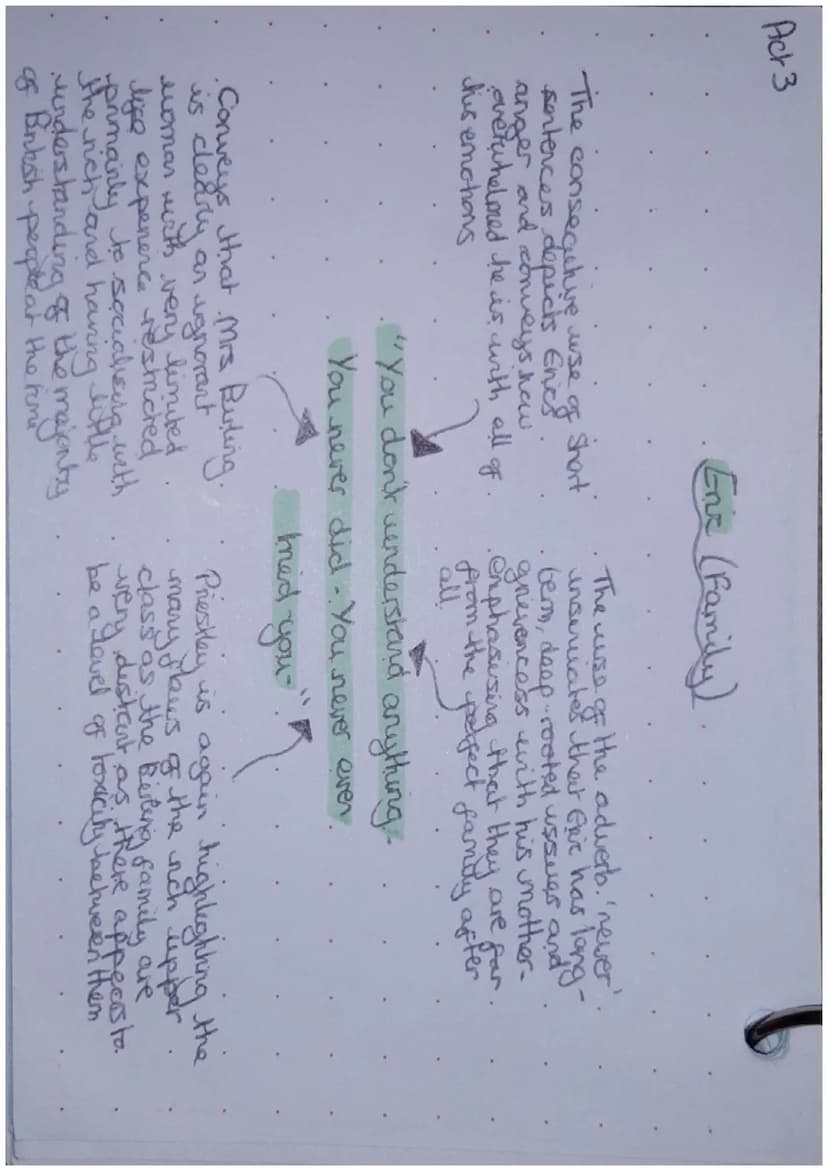 Act 3
Eric (Family)
The consecutive use of short
sentences depicts Eric's
anger and conveys how
overwhelmed he is with all of
his emotions
The use of the adverb 'never'
insinuates that Eric has long-
term, deep-rooted issues and
grievencess with his mother-
emphasising that they are far
from the perfect family after
all.
"You don't understand anything.
You never did. You never even
tried-you-"
Conveys that Mrs Birling
is clearly an ignorant
woman with very limited
life experience restricted
primarily to socialising with
the rich and having little
understanding of the majority
of British people at the time
Priestley is again highlighting the
many flaws of the rich upper
class as the Birling family are
very distant as there appears to
be a level of toxicity between them